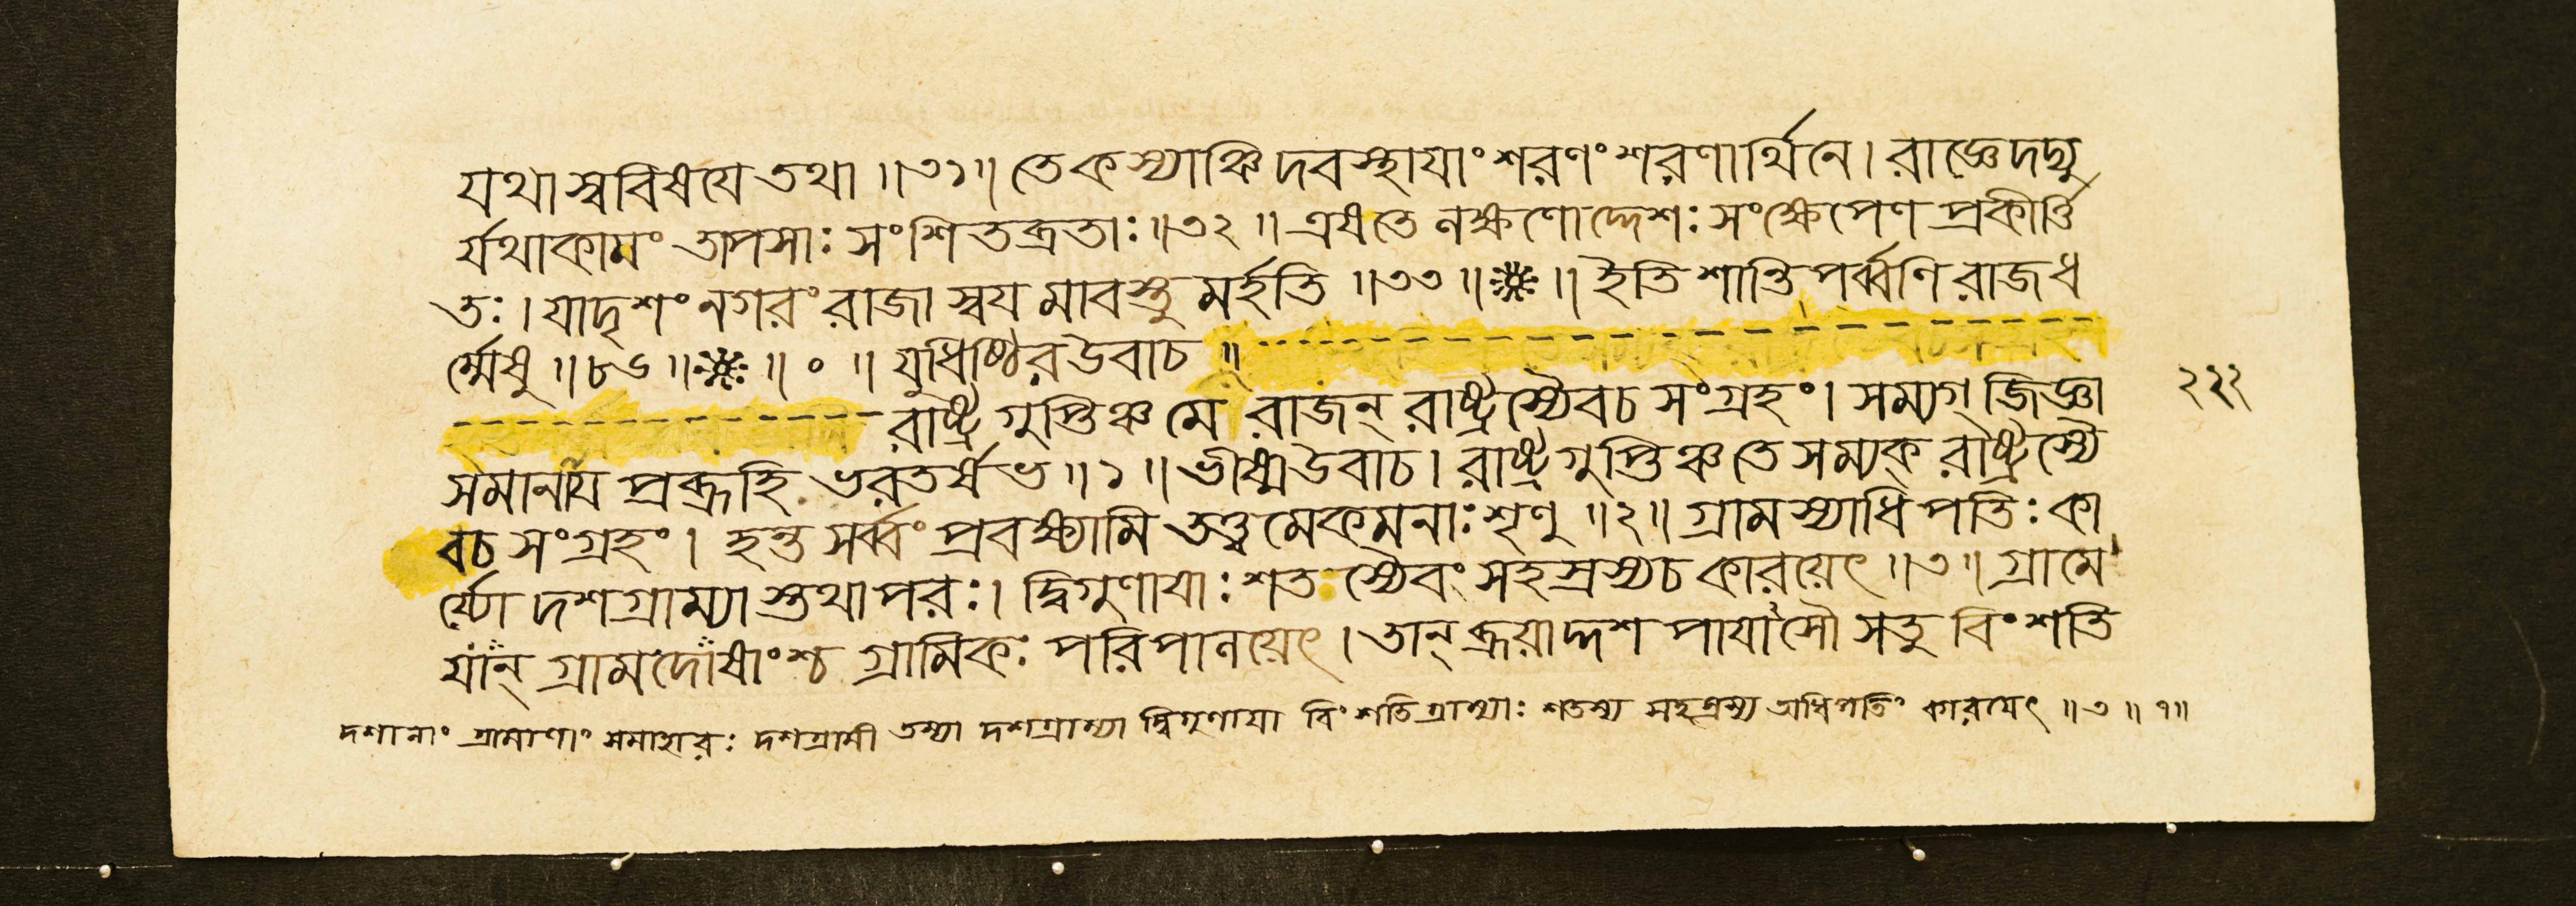 যথাস্ববিষযে তথা ॥৩১॥ তে কস্যাঞ্চিদবস্থাযাং শরণং শরণার্থিনে। রাজ্ঞে দদ্যু
র্যথাকামং তাপসাঃ সংশিতব্রতাঃ ॥৩২॥ এষতে লক্ষণোদ্দেশঃ সংক্ষেপেণ প্রকীর্ত্তি
তঃ। যাদৃশং নগরং রাজা স্বযমাবস্তুমর্হতি ॥৩৩॥ ॥ ইতি শান্তিপর্ব্বণি রাজধ
র্ম্মেষু ॥৮৬॥ ॥ ০ ॥ যুধিষ্ঠির উবাচ ॥
রাষ্ট্রগুপ্তিঞ্চ মে রাজন্ রাষ্ট্রস্যৈবচ সংগ্রহং। সম্যগ্ জিজ্ঞা
সমানায প্রব্রূহি ভরতর্ষভ ॥১॥ ভীষ্ম উবাচ। রাষ্ট্রগুপ্তিঞ্চ তে সম্যক্ রাষ্ট্রস্যৈ
বচ সংগ্রহং। হন্ত সর্ব্বং প্রবক্ষ্যামি তত্ত্বমেকমনাঃ শৃণু ॥২॥ গ্রামস্যাধিপতিঃ কা
র্য্যো দশগ্রাম্যাস্তথাপরঃ। দ্বিগুণাযাঃ শতস্যৈবং সহস্রস্যচ কারয়েৎ ॥৩॥ গ্রামে
যান্ গ্রামদোষাংশ্চ গ্রামিকঃ পরিপালয়েৎ। তান্ ব্রূয়াদ্দশপাযাসৌ সতু বিংশতি
২২২
দশানাং গ্রামাণাং সমাহারঃ দশগ্রামী তস্যা দশগ্রাম্যা দ্বিগুণাযা বিংশতিগ্রাম্যাঃ শতস্য সহস্রস্য অধিপতিং কারযেৎ ॥৩॥ ৭॥